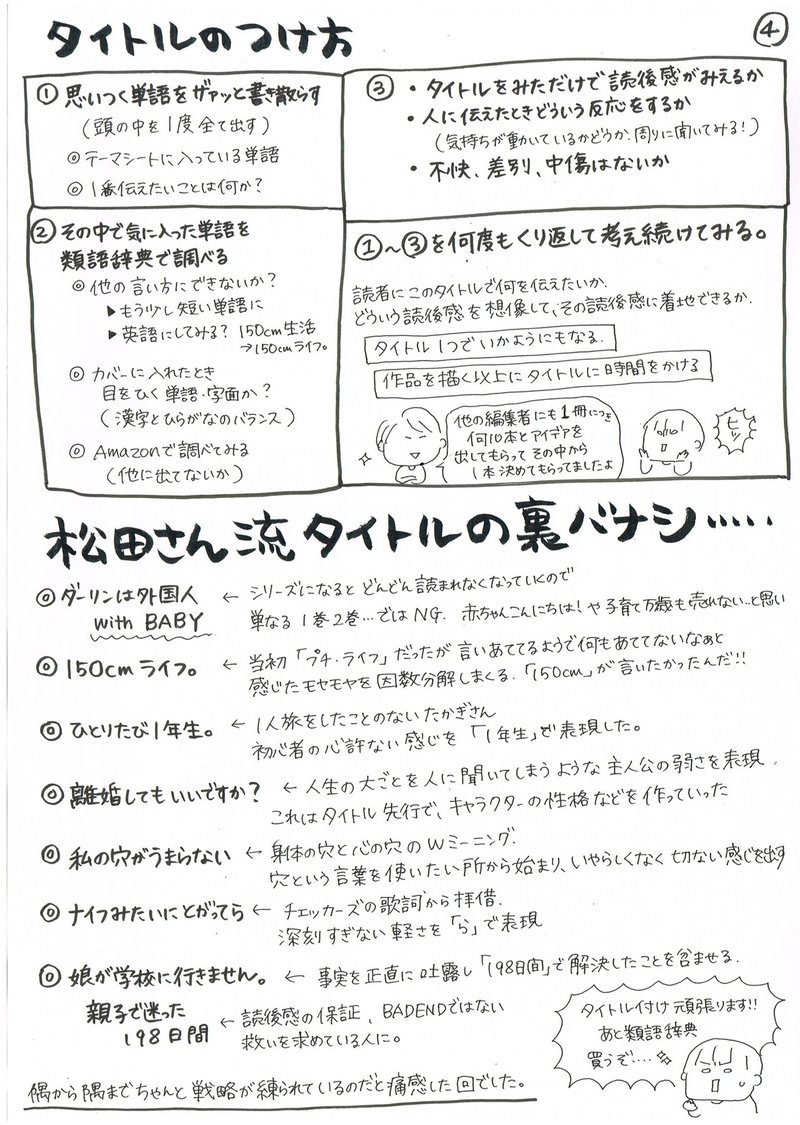 タイトルのつけ方
④
① 思いつく単語をザァッと書き散らす
(頭の中を1度全て出す)
◎ テーマシートに入っている単語
◎ 1番伝えたいことは何か?
② その中で気に入った単語を
類語辞典で調べる
◎ 他の言い方にできないか?
▶ もう少し短い単語に
▶ 英語にしてみる? 150cm生活
→150cmライフ。
◎ カバーに入れたとき
目をひく単語・字面か?
(漢字とひらがなのバランス)
◎ Amazonで調べてみる
(他に出てないか)
③ ・タイトルをみただけで読後感がみえるか
・人に伝えたときどういう反応をするか
(気持ちが動いているかどうか.周りに聞いてみる!)
・不快、差別、中傷はないか
①~③を何度もくり返して考え続けてみる。
読者にこのタイトルで何を伝えたいか.
どういう読後感を想像して、その読後感に着地できるか.
タイトル1つでいかようにもなる.
作品を描く以上にタイトルに時間をかける
他の編集者にも1冊につき
何10本とアイデアを
出してもらってその中から
1本決めてもらってましたよ
ヒッ
松田さん流タイトルの裏バナシ・・・・・
◎ ダーリンは外国人 ← シリーズになるとどんどん読まれなくなっていくので
with BABY 単なる1巻2巻…ではNG. 赤ちゃんこんにちは!や子育て万歳も売れない..と思い
◎ 150cmライフ。 ← 当初「プチ・ライフ」だったが言いあててるようで何もあててないなぁと
感じたモヤモヤを因数分解しまくる.「150cm」が言いたかったんだ!!
◎ ひとりたび1年生。 ← 1人旅をしたことのないたかぎさん
初心者の心許ない感じを「1年生」で表現した。
◎ 離婚してもいいですか? ← 人生の大ごとを人に聞いてしまうような主人公の弱さを表現.
これはタイトル先行で、キャラクターの性格などを作っていった
◎ 私の穴がうまらない ← 身体の穴と心の穴のWミーニング.
穴という言葉を使いたい所から始まり、いやらしくなく切ない感じを出す
◎ ナイフみたいにとがってら ← チェッカーズの歌詞から拝借.
深刻すぎない軽さを「ら」で表現
◎ 娘が学校に行きません。 ← 事実を正直に吐露し「198日間」で解決したことを含ませる.
親子で迷った
198日間 ← 読後感の保証、BADENDではない
救いを求めている人に。
タイトル付け頑張ります!!
あと類語辞典
買うぞ・・・・
隅から隅までちゃんと戦略が練られているのだと痛感した回でした。